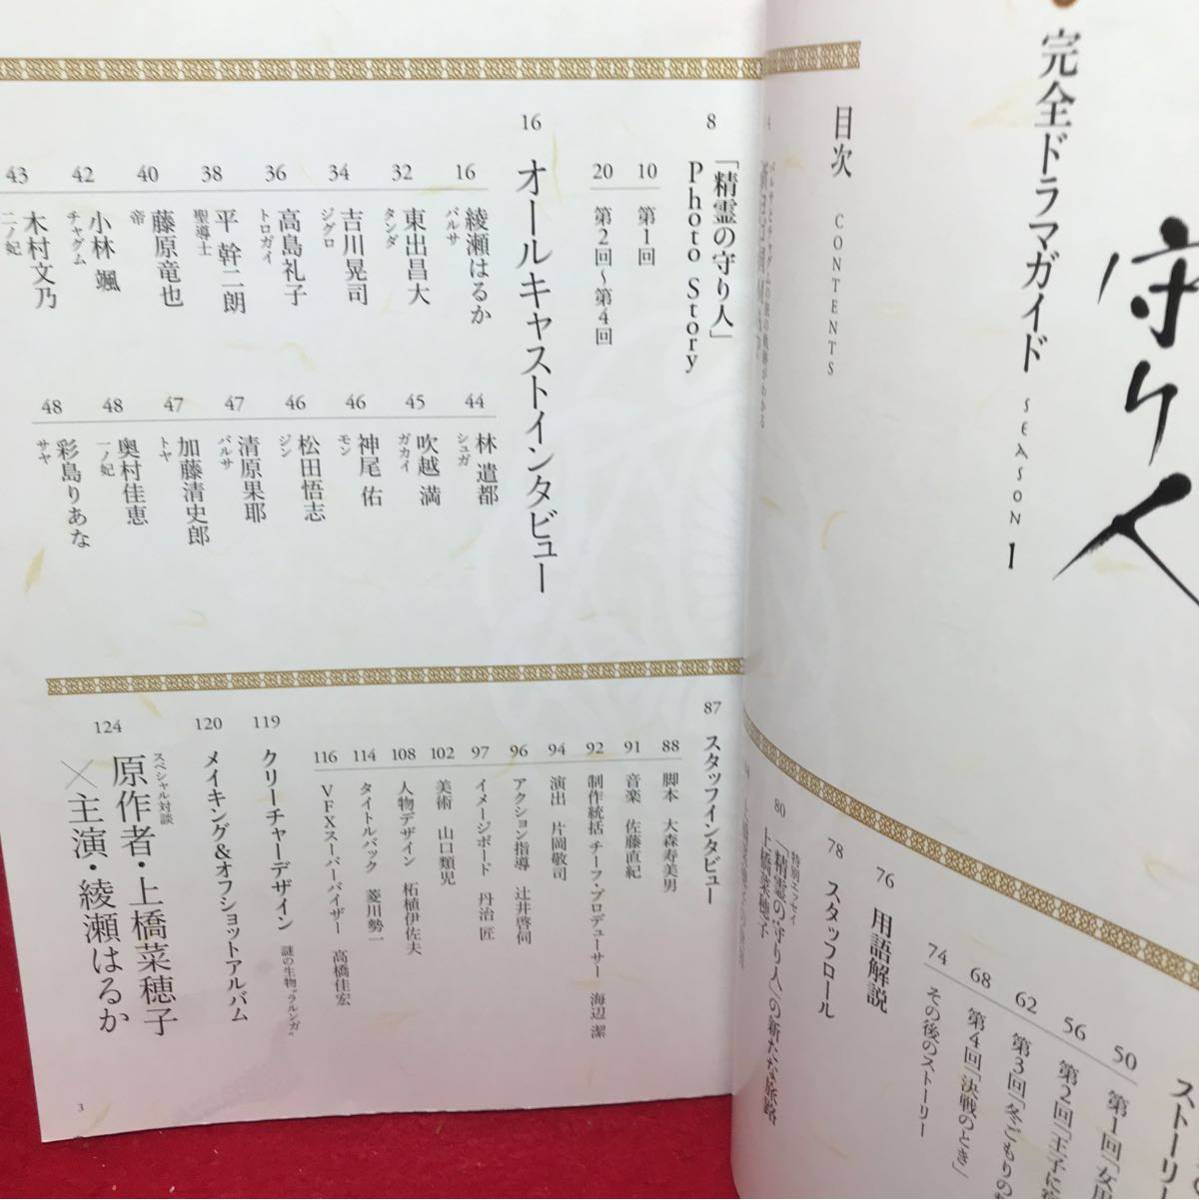 守り人
完全ドラマガイド SEASON 1
目次 CONTENTS
4
8 「精霊の守り人」
Photo Story
10 第1回
20 第2回〜第4回
16 オールキャストインタビュー
16 綾瀬はるか
バルサ
32 東出昌大
タンダ
34 吉川晃司
ジグロ
36 高島礼子
トロガイ
38 平 幹二朗
聖導士
40 藤原竜也
帝
42 小林 颯
チャグム
43 木村文乃
二ノ妃
44 林 遣都
シュガ
45 吹越 満
ガカイ
46 神尾 佑
モン
46 松田悟志
ジン
47 清原果耶
バルサ
47 加藤清史郎
トヤ
48 奥村佳恵
一ノ妃
48 彩島りあな
サヤ
ストーリー
50 第1回「女
56 第2回「王子に
62 第3回「冬ごもりの
68 第4回「決戦のとき」
74 その後のストーリー
76 用語解説
78 スタッフロール
80 特別エッセイ
「〈精霊の守り人〉の新たな旅路」
上橋菜穂子
87 スタッフインタビュー
88 脚本 大森寿美男
91 音楽 佐藤直紀
92 制作統括 チーフ・プロデューサー 海辺 潔
94 演出 片岡敬司
96 アクション指導 辻井啓伺
97 イメージボード 丹治 匠
102 美術 山口類児
108 人物デザイン 柘植伊佐夫
114 タイトルバック 菱川勢一
116 VFXスーパーバイザー 高橋佳宏
119 クリーチャーデザイン 謎の生物“ラルンガ”
120 メイキング&オフショットアルバム
124 スペシャル対談
原作者・上橋菜穂子
×主演・綾瀬はるか
3